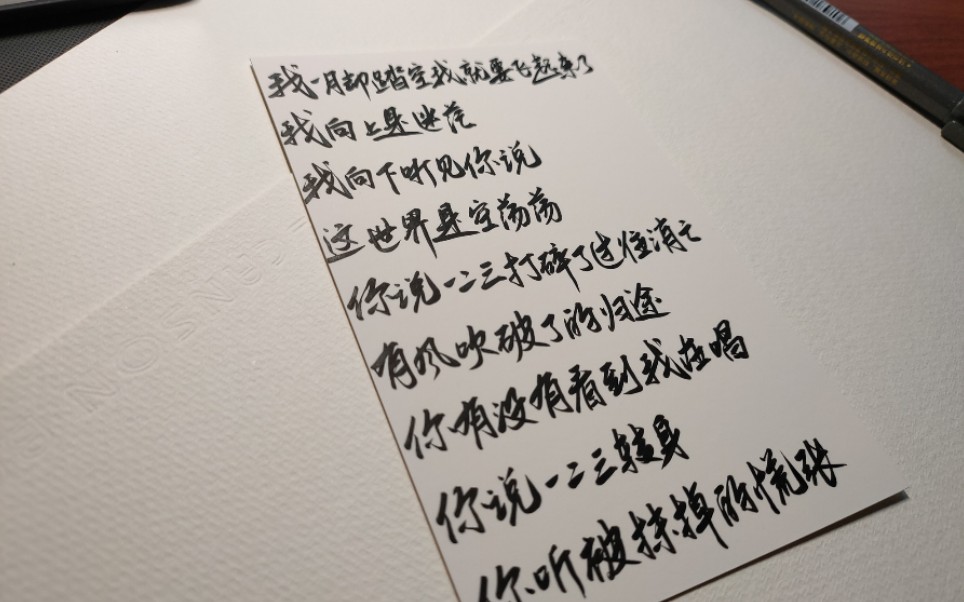 我一月却踏空我就要飞起来了
我向上是迷茫
我向下听见你说
这世界是空荡荡
你说一二三打碎了过往消亡
有风吹破了的归途
你有没有看到我在唱
你说一二三转身
你听被抹掉的慌张